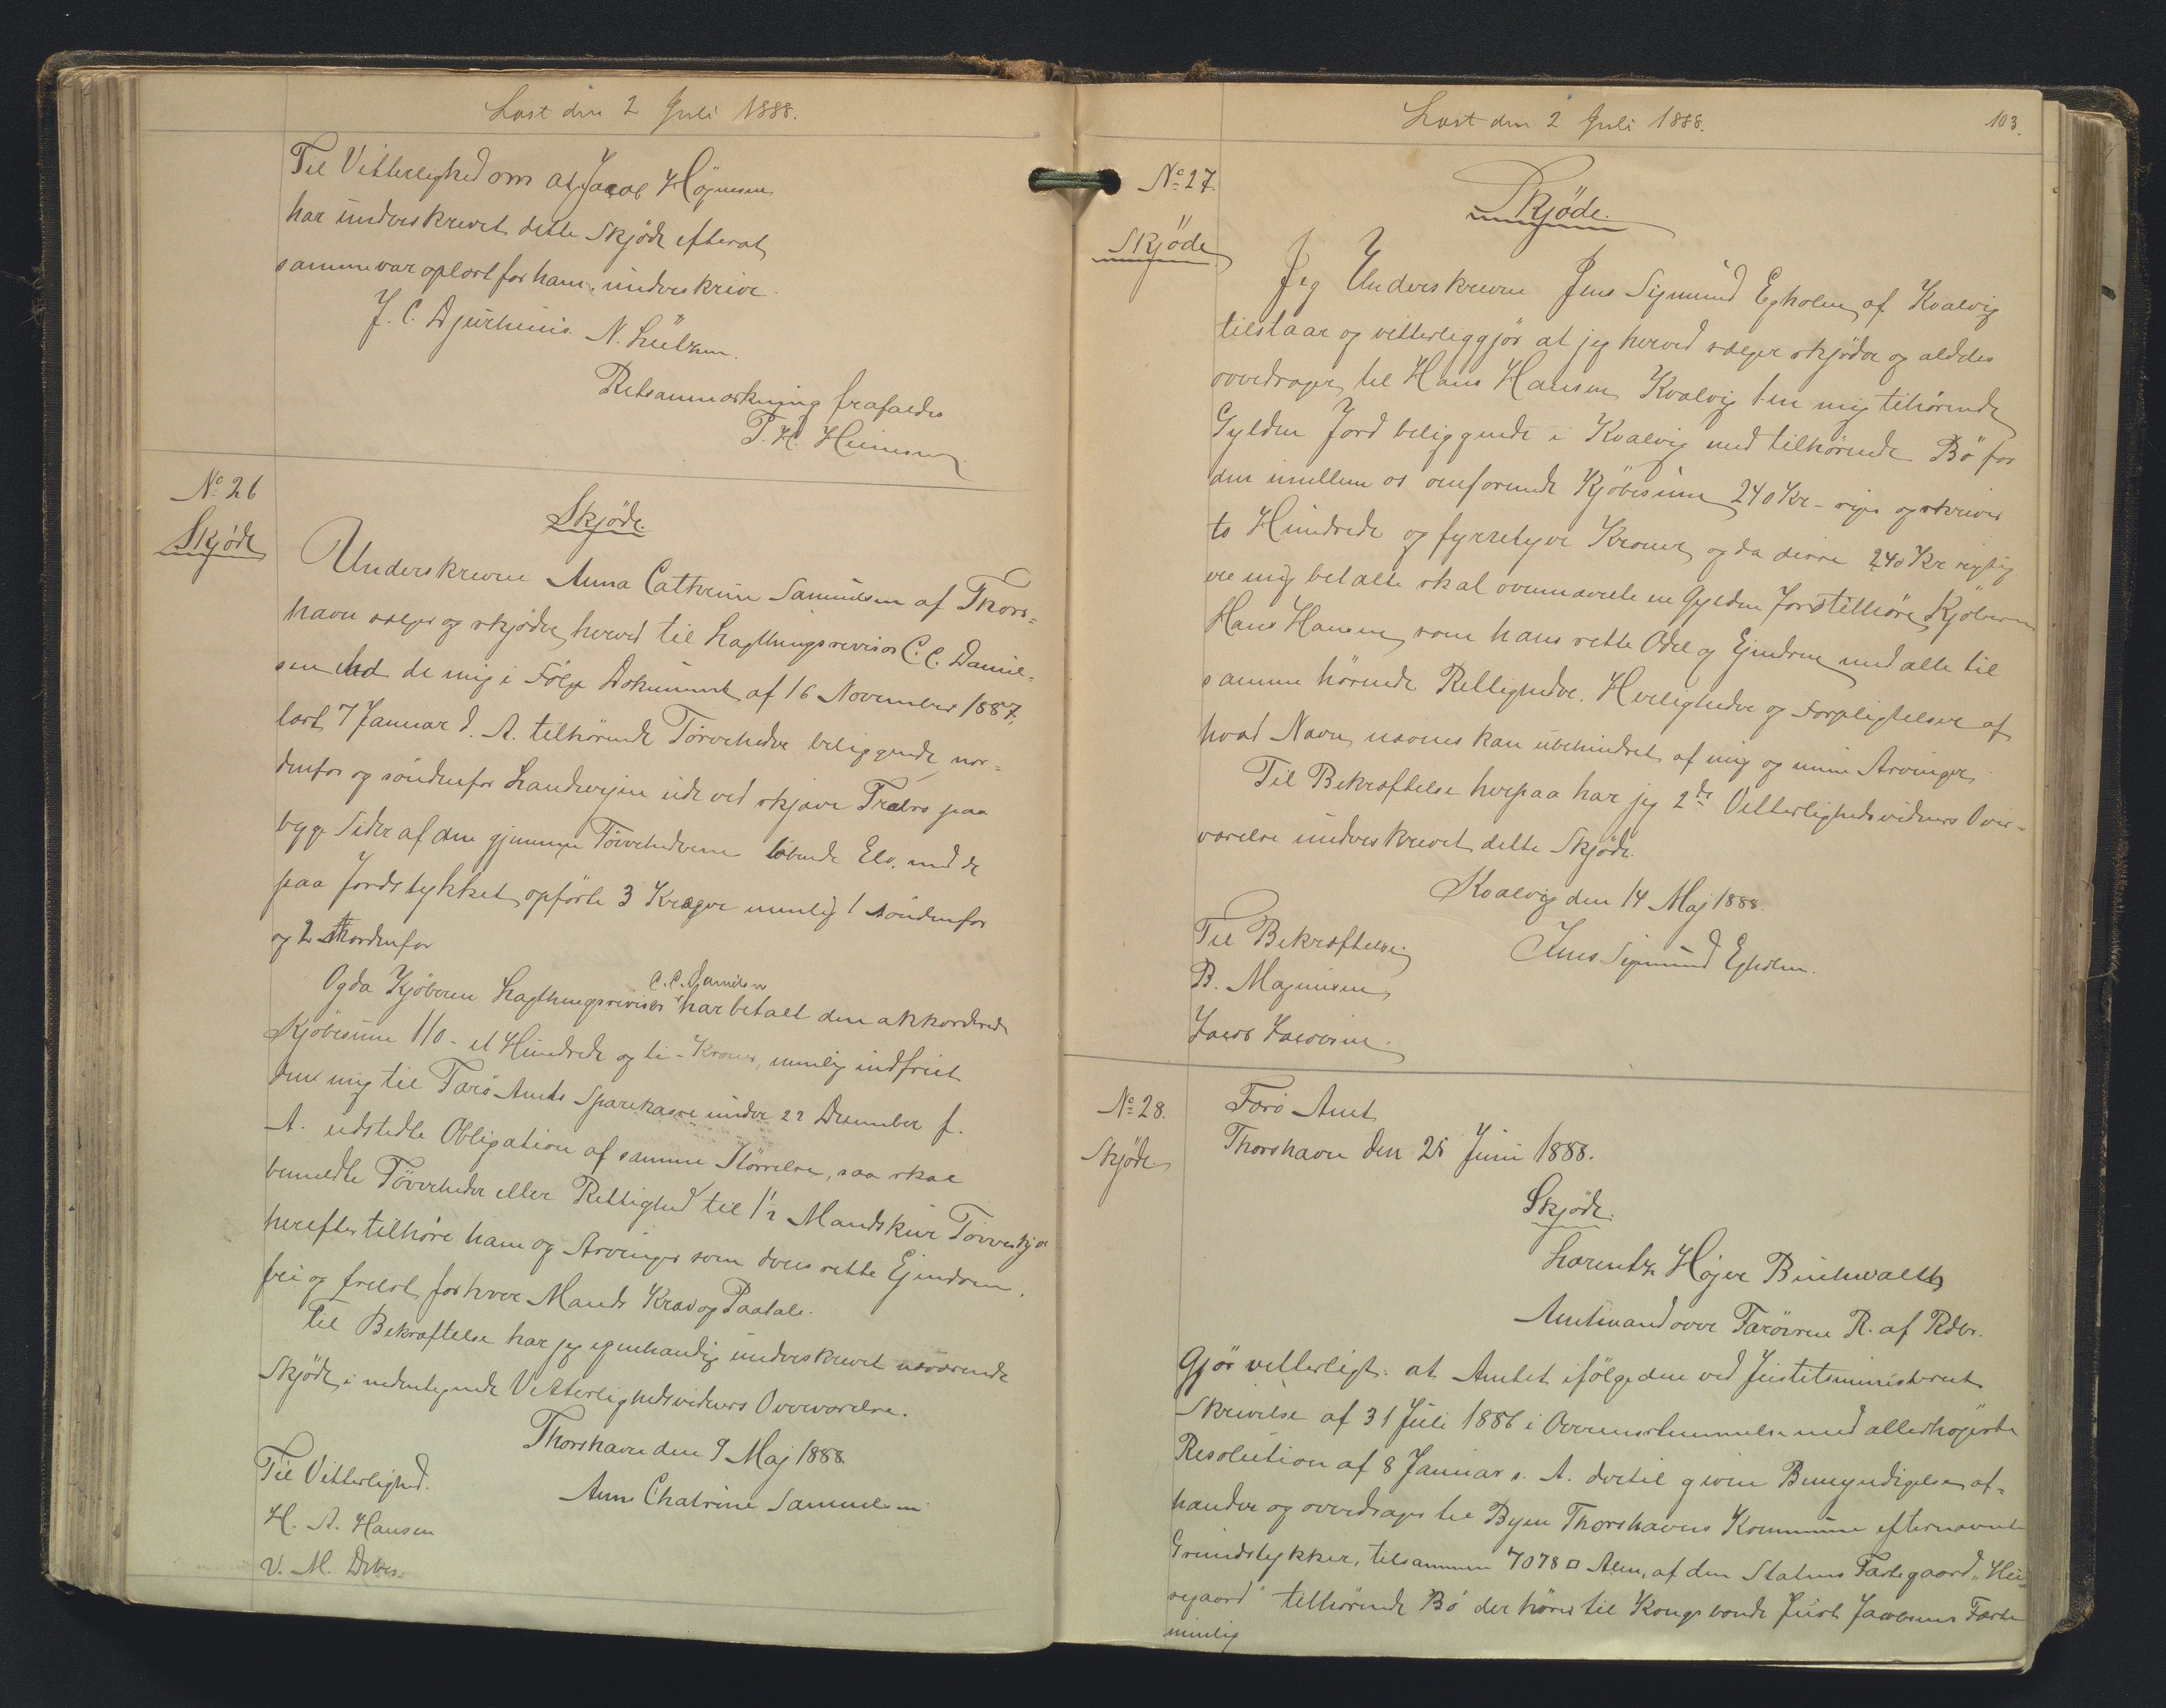 Læst den 2 Juli 1888.
Til Vitterlighed om at Jacob Högnesen
har underskrevet dette Skjöde efterat
samme var oplæst for ham, underskrive.
J. C. Djurhuus. N. Lützen.
Retsanmærkning frafaldes
P. H.
No 26
Skjöde
Skjöde.
Underskrevne Anna Cathrine Samuelsen af Thors=
havn sælger og skjöder herved til Lagthingsrevisor C. C. Daniel=
sen de mig i Fölge Dokument af 16 November 1887,
læst 7 Januar d. A. tilhörende Törveheder, beliggende nor=
denfor og söndenfor Landevejen ude ved skjæve Træbro paa
begge Sider af den gjennem Törvehederne löbende Elv, med de
paa Jordstykket opförte 3 Krogve nemlig 1 söndenfor
og 2 nordenfor
C. C. Danielsen
Og da Kjöberen Lagthingsrevisor har betalt den akkorderede
Kjöbesum 110 - et Hundrede og ti - Kroner, nemlig indfriet
den mig til Færö Amts Sparekasse under 22 December f.
A. udstedte Obligation af samme Störrelse, saa skal
bemeldte Törveheder eller Rettighed til 1½ Mandskur Törveskjær
herefter tilhöre ham og Arvinger som deres rette Ejendom,
fri og frelst for hver Mands Krav og Paatale.
Til Bekræftelse har jeg egenhændig underskrevet nærværende
Skjöde i nedentegnede Vitterlighedsvidners Overværelse.
Thorshavn den 9 Maj 1888.
Anne Chatrine Samuelsen
Til Vitterlighed.
H. A. Hansen
V. M. Debes.
Læst den 2 Juli 1888.
103.
No 27.
Skjöde
Skjöde.
Jeg Underskrevne Jens Sigmund Egholm af Kvalvig
tilstaar og vitterliggjör at jeg herved sælger skjöder og aldeles
overdrager til Hans Hansen Kvalvig 1 en mig tilhörende
Gylden Jord beliggende i Kvalvig med tilhörende Bö for
den imellem os omforenede Kjöbesum 240 Kr - siger og skriver
to Hundrede og fyrretyve Kroner, og da disse 240 Kr rigtig
ere mig betalte skal ovennævnte en Gylden Jord tilhöre Kjöberen
Hans Hansen som hans rette Odel og Ejendom med alle til
samme hörende Rettigheder, Herligheder og Forpligtelser af
hvad Navn nævnes kan ubehindret af mig og mine Arvinger
Til Bekræftelse herpaa har jeg 2de Vitterlighedsvidners Over=
værelse underskrevet dette Skjöde.
Kvalvig den 14 Maj 1888.
Til Bekræftelse
Jens Sigmund Egholm.
B. Magnusen,
Jacob Jacobsen.
No 28.
Skjöde
Færö Amt
Thorshavn den 25 Juni 1888.
Skjöde.
Lorentz Höjer Buchwaldt
Amtmand over Færöerne R. af Rdbr.
Gjör vitterligt: at Amtet ifölge den ved Justitsministeriets
Skrivelse af 31 Juli 1886 i Overensstemmelse med allerhöjeste
Resolution af 8 Januar s. A. dertil givne Bemyndigelse af=
hænder og overdrager til Byen Thorshavns Kommune efternævnte
Grundstykker, tilsammen 7078 □ Alen, af den Statens Fæstegaard "Hus
egaard" tilhörende Bö der hörer til Kongsbonde Just Jacobsens Fæste
nemlig